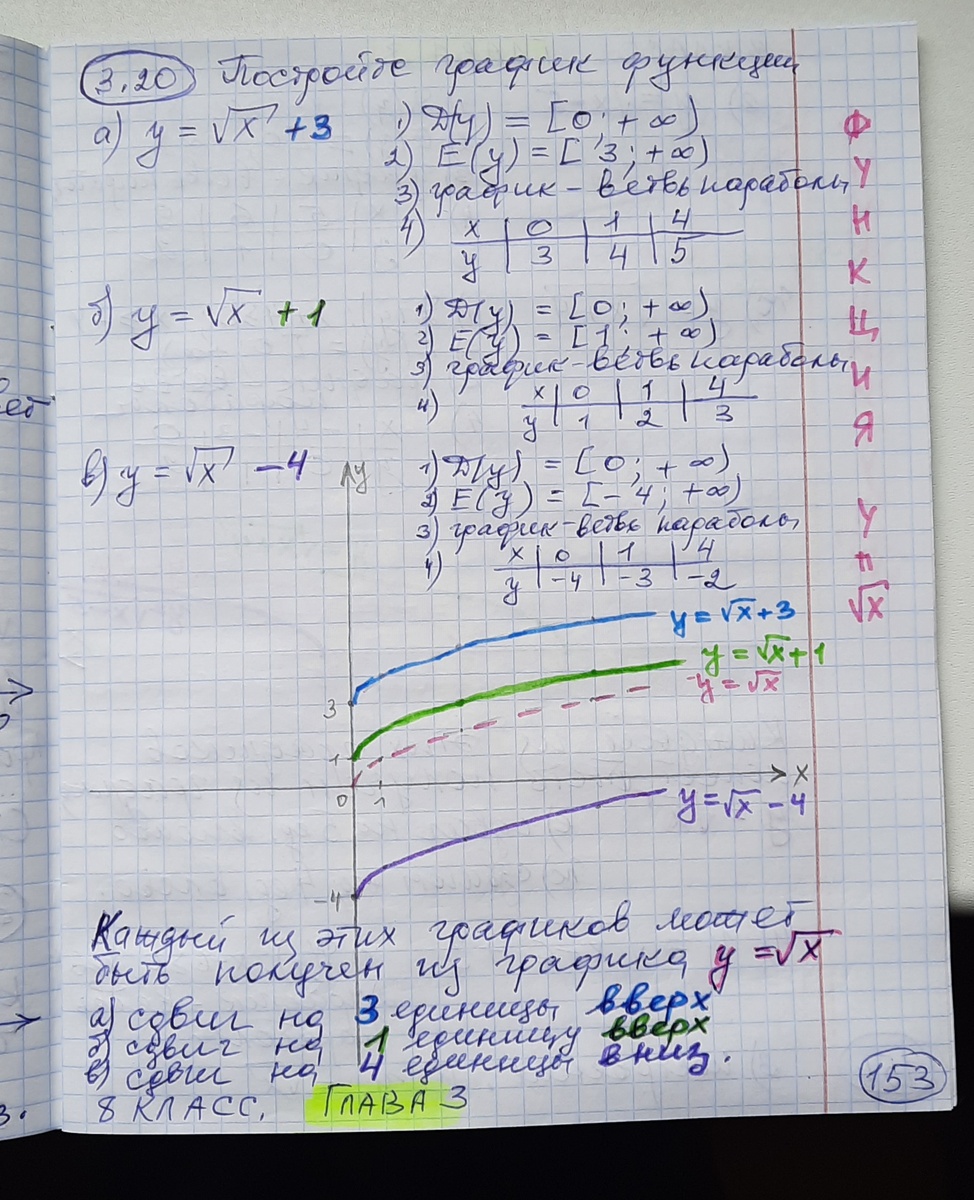 3.20 Постройте график функции
а) y = √x + 3
1) D(y) = [0; +∞)
2) E(y) = [3; +∞)
3) график – ветвь параболы
4) x | 0 | 1 | 4
y | 3 | 4 | 5
б) y = √x + 1
1) D(y) = [0; +∞)
2) E(y) = [1; +∞)
3) график – ветвь параболы
4) x | 0 | 1 | 4
y | 1 | 2 | 3
в) y = √x - 4
1) D(y) = [0; +∞)
2) E(y) = [-4; +∞)
3) график – ветвь параболы
4) x | 0 | 1 | 4
y | -4 | -3 | -2
y
y = √x + 3
y = √x + 1
y = √x
3
1
x
0 1
y = √x - 4
-4
Каждый из этих графиков может
быть получен из графика y = √x
а) сдвиг на 3 единицы вверх
б) сдвиг на 1 единицу вверх
в) сдвиг на 4 единицы вниз.
8 КЛАСС, ГЛАВА 3
153
Ф
У
Н
К
Ц
И
Я
У
=
√x